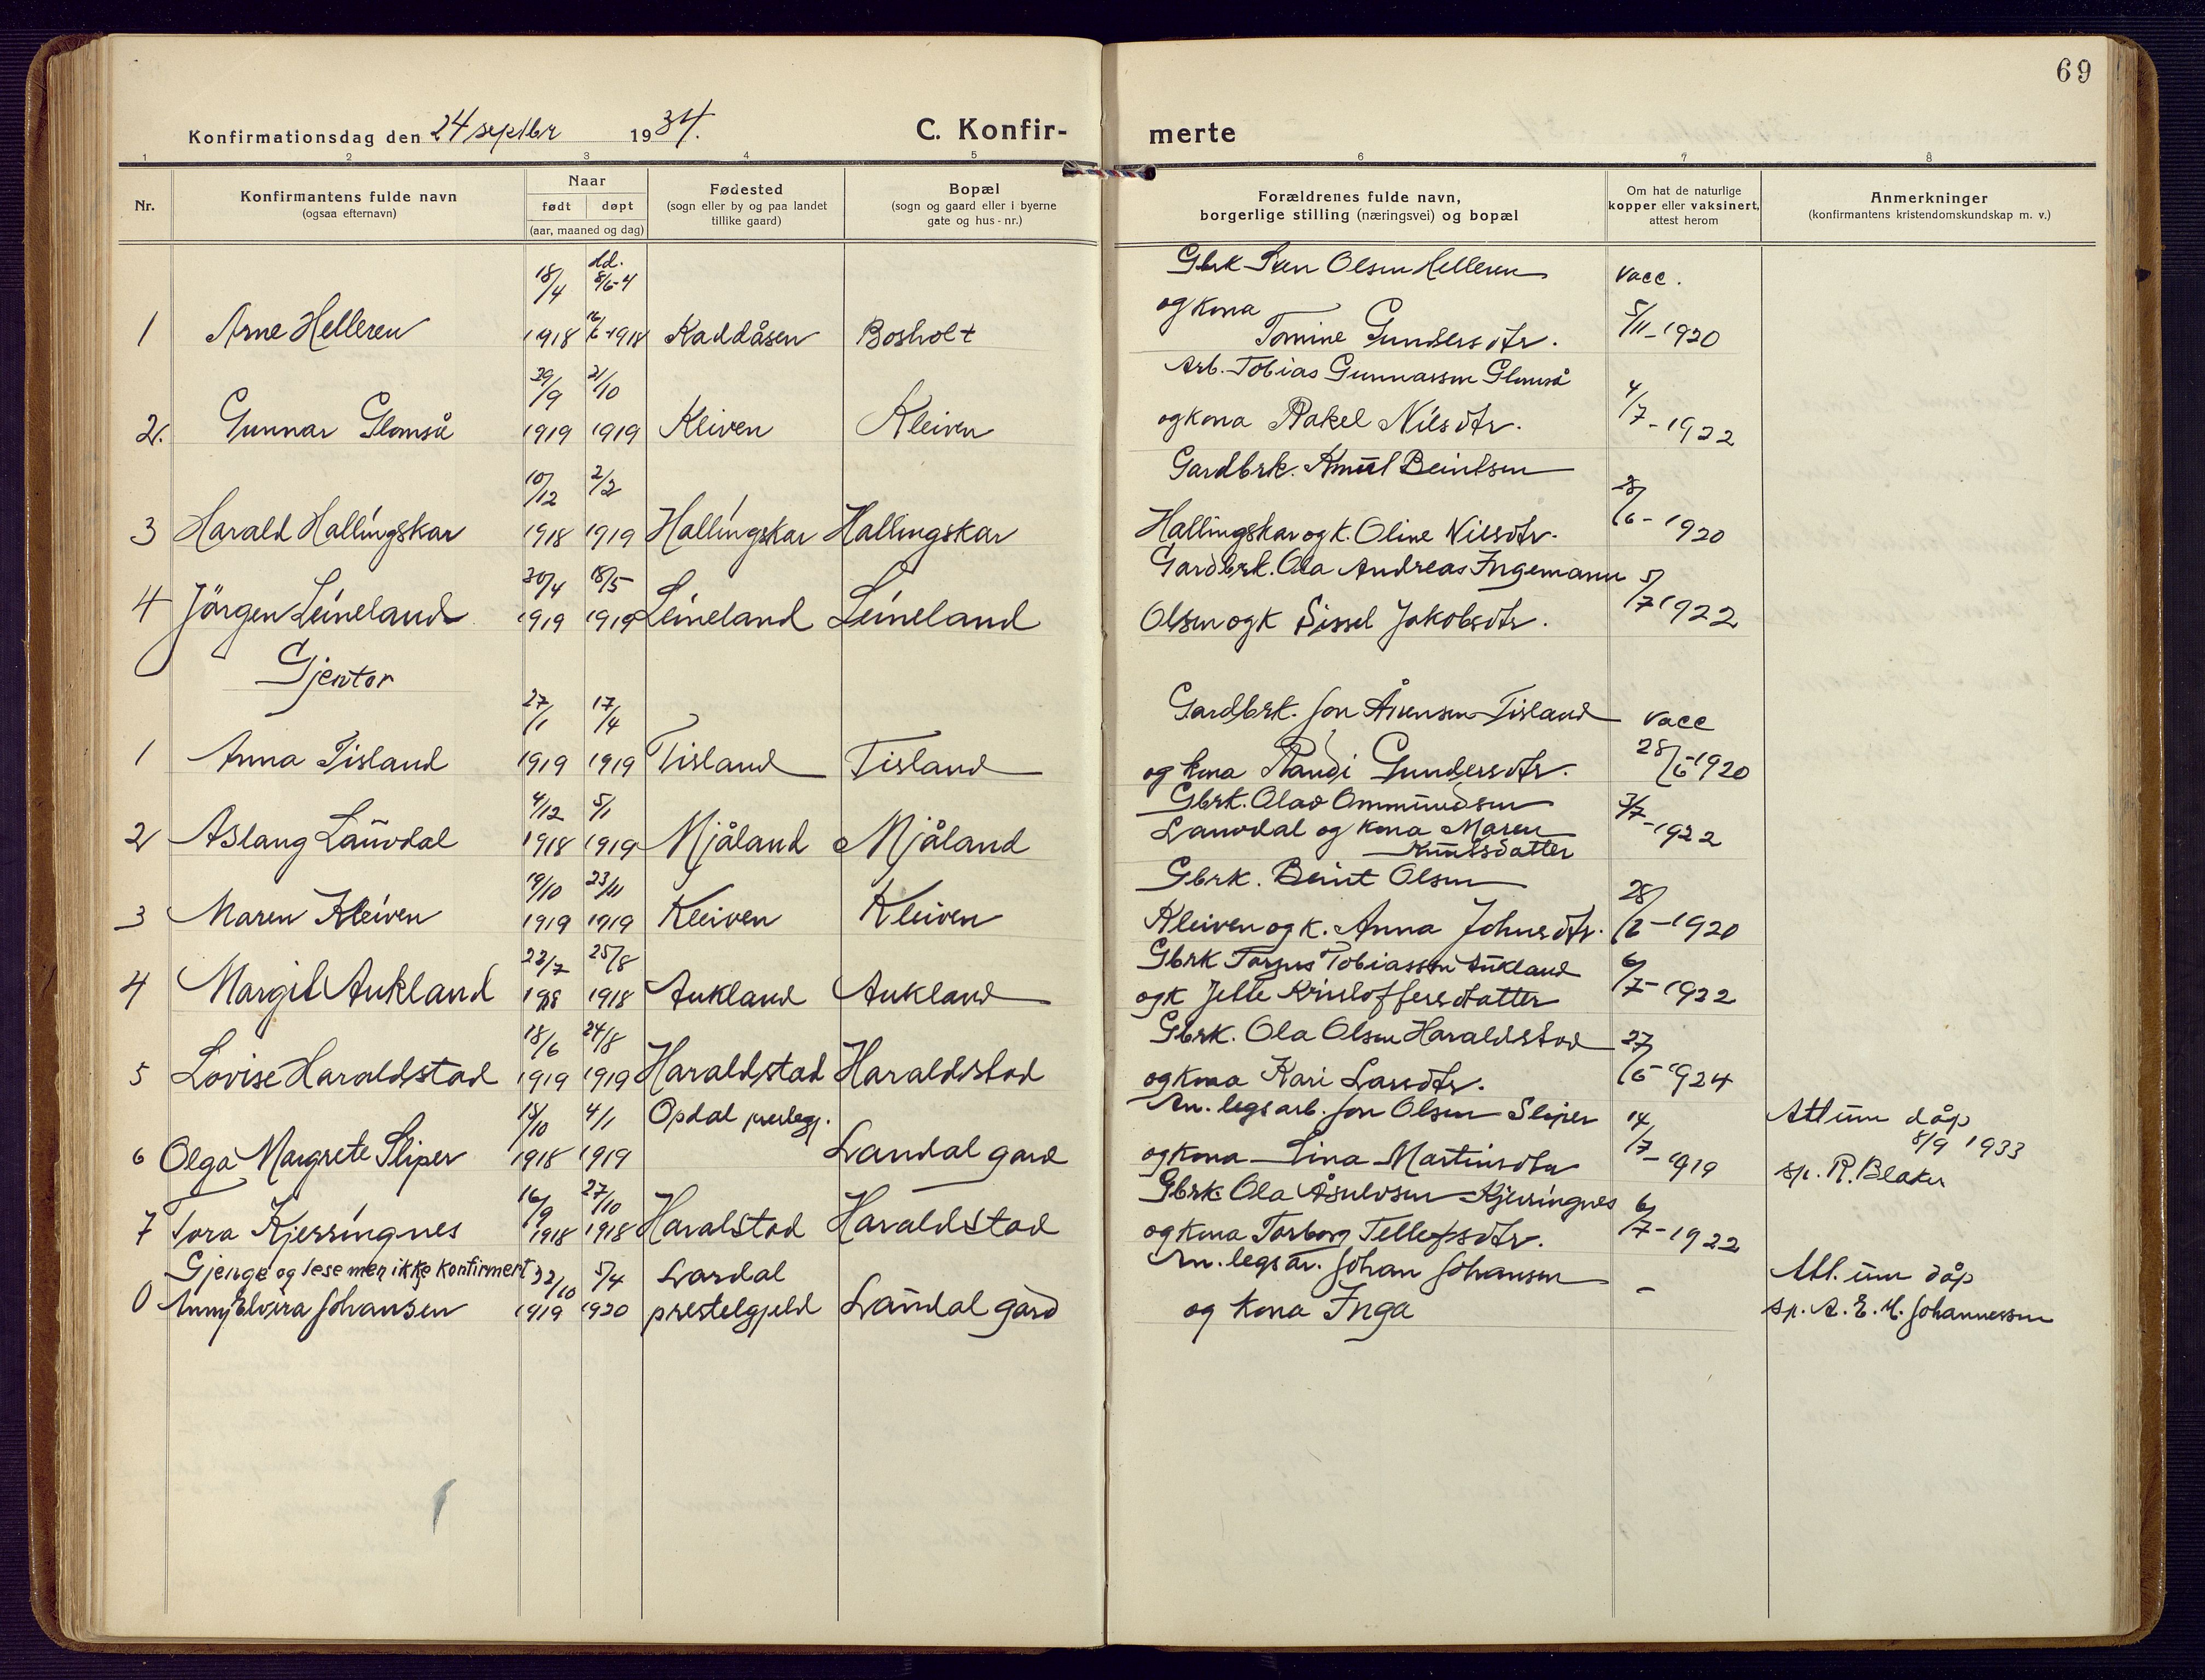 69
Konfirmationsdag den 24 septbr 1934.
C. Konfir-
merte
1 2 3 4 5 6 7 8
Nr.
Konfirmantens fulde navn
(ogsaa efternavn)
Naar
født døpt
(aar, maaned og dag)
Fødested
(sogn eller by og paa landet
tillike gaard)
Bopæl
(sogn og gaard eller i byerne
gate og hus-nr.)
Forældrenes fulde navn,
borgerlige stilling (næringsvei) og bopæl
Om hat de naturlige
kopper eller vaksinert,
attest herom
Anmerkninger
(konfirmantens kristendomskundskap m. v.)
18/4 Gbrk Sven Olsen Helleren vacc.
og kona 5/11-1920
1 Arne Helleren 1918 1918 Kaddåsen Bosholt Tomine Gundersdtr.
29/9 21/10 Arb. Tobias Gunnarsen Glomså 4/7-1922
2. Gunnar Glomså 1919 1919 Kleiven Kleiven og kona Rakel Nilsdtr.
10/12 2/2 Gardbrk. Knut Beintsen
3 Harald Hallingskar 1918 1919 Hallingskar Hallingskar Hallingskar og k. Oline Nilsdtr. /6-1920
30/4 18/5 Gardbrk. Ola Andreas Ingemann 5/7 1922
4 Jörgen Leineland 1919 1919 Leineland Leineland Olsen og k Sissel Jakobsdtr.
Gjentor
27/1 17/4 Gardbrk. Jon Tisland vacc
1 Anna Tisland 1919 1919 Tisland Tisland og kona Randi Gundersdtr. 28/6 1920
4/12 5/1 Gbrk. Olav Ommundsen 3/7-1922
2 Aslaug Lauvdal 1918 1919 Mjåland Mjåland Lauvdal og kona Maren
Knutsdatter
19/10 23/11 Gbrk. Beint Olsen
3 Maren Kleiven 1919 1919 Kleiven Kleiven Kleiven og k. Anna Johnsdtr. 28/6-1920
22/7 25/8 Gbrk Torjus Tobiassen Aukland 6/7-1922
4 Margit Aukland 1918 Aukland Aukland og k Jette Kristoffersdatter
18/6 24/8 Gbrk. Ola Olsen Haraldstad
5 Lovise Haraldstad 1919 1919 Haraldstad Haraldstad og kona Kari Larsdtr. 27/6 1924
15/10 4/1 Opdal prestegj. An.legsarb. Jon Olsen Sliper 14/7-1919 Att um dåp
8/9 1933
6 Olga Margrete Sliper 1918 1919 Landal gard og kona Lina Martinsdtr sp. R. Blaker
16/9 27/10 Gbrk. Ola Åsulvsen Kjerringnes 6/7-1922
7 Tora Kjerringnes 1918 1918 Haralstad Haraldstad og kona Torborg Tellefsdtr.
Gjenge og lese men ikke konfirmert 22/10 5/4 Lardal An.legsar. Johan Johansen – Att. um dåp
0 Anny Elvira Johansen 1919 1920 prestelgjeld Landal gard og kona Inga sp. A. E. M. Johannessen